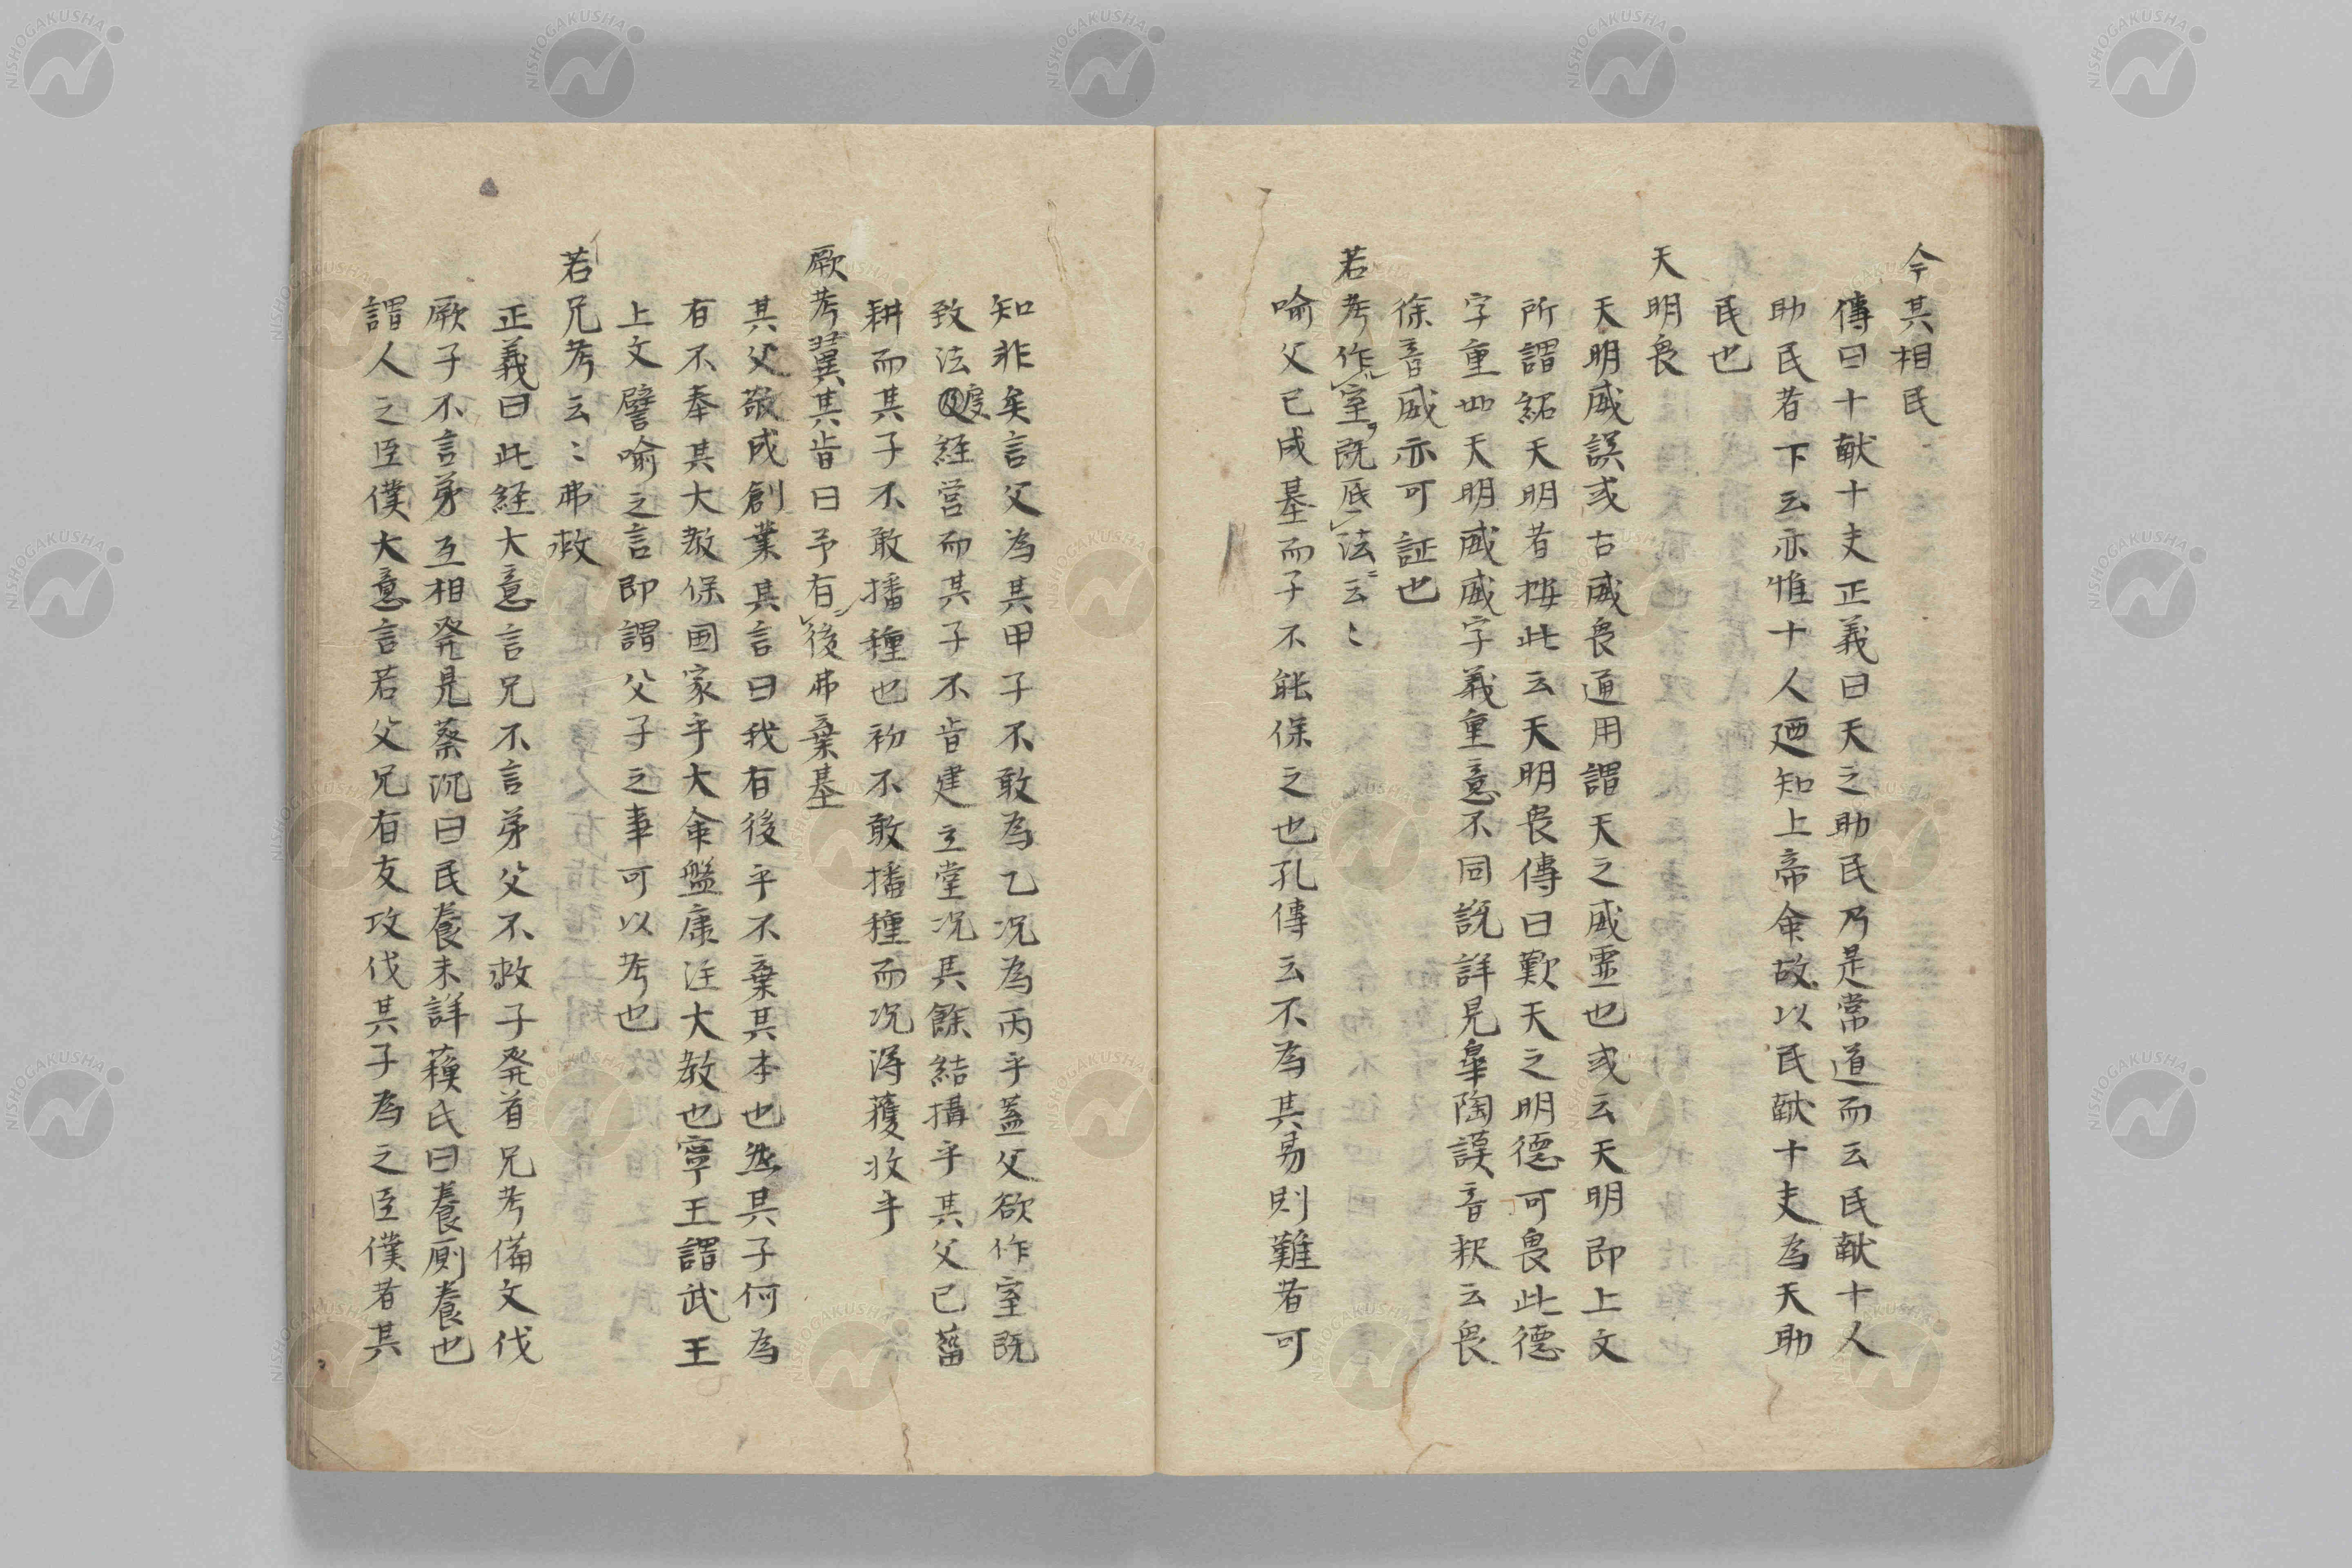 今其相民
傳曰十献十夫正義曰天之助民乃是常道而云民献十人
助民者下云亦惟十人廸知上帝命故以民献十夫為天助
民也
天明畏
天明威誤或古威畏通用謂天之威靈也或云天明即上文
所謂紹天明者按此云天明畏傳曰歎天之明德可畏此德
字重出天明威威字義重意不同説詳見皐陶謨音釈云畏
徐音威亦可証也
若考作室既底法云〻
喻父已成基而子不能保之也孔傳云不為其易則難者可
知非矣言父為其甲子不敢為乙况為丙乎蓋父欲作室既
致法度経営而其子不肯建立堂况其餘結搆乎其父已菑
耕而其子不敢播種也初不敢播種而况得穫收乎
厥考翼其肯曰予有後弗棄基
其父敬成創業其言曰我有後乎不棄其本也然其子何為
有不奉其大教保国家乎大命盤康注大教也寧王謂武王
上文譬喻之言即謂父子之事可以考也
若兄考云〻弗救
正義曰此経大意言兄不言弟父不救子発首兄考備文伐
厥子不言弟互相発見蔡沉曰民養未詳蘓氏曰養厠養也
謂人之臣僕大意言若父兄有友攻伐其子為之臣僕者其
NISHOGAKUSHA